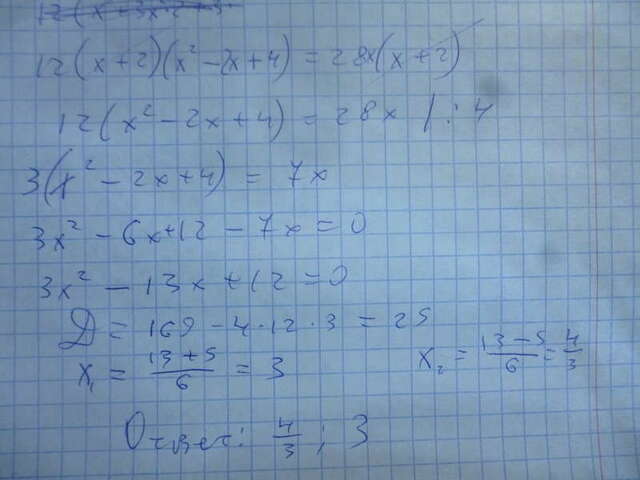 12(x+2)(x² - 2x + 4) = 28x(x+2)
12(x² - 2x + 4) = 28x | : 4
3(x² - 2x + 4) = 7x
3x² - 6x + 12 - 7x = 0
3x² - 13x + 12 = 0
Д = 169 - 4·12·3 = 25
x₁ = (13+5)/6 = 3 x₂ = (13-5)/6 = 4/3
Ответ: 4/3 ; 3